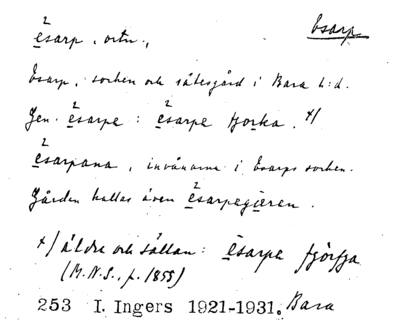 Esarp
ẹ̀sarp, ortn.,
Esarp, socken och sätesgård i Bara h:d.
Gen. ẹ̀sarpe: ẹ̀sarpe tjorka. x/
ẹ̀sarpana, invånarna i Esarps socken.
Gården kallas även ẹ̀sarpegieren.
x/ äldre och sällan: ẹ̀sarpe
(M.N.S., f. 1855)
253 I. Ingers 1921-1931. Bara